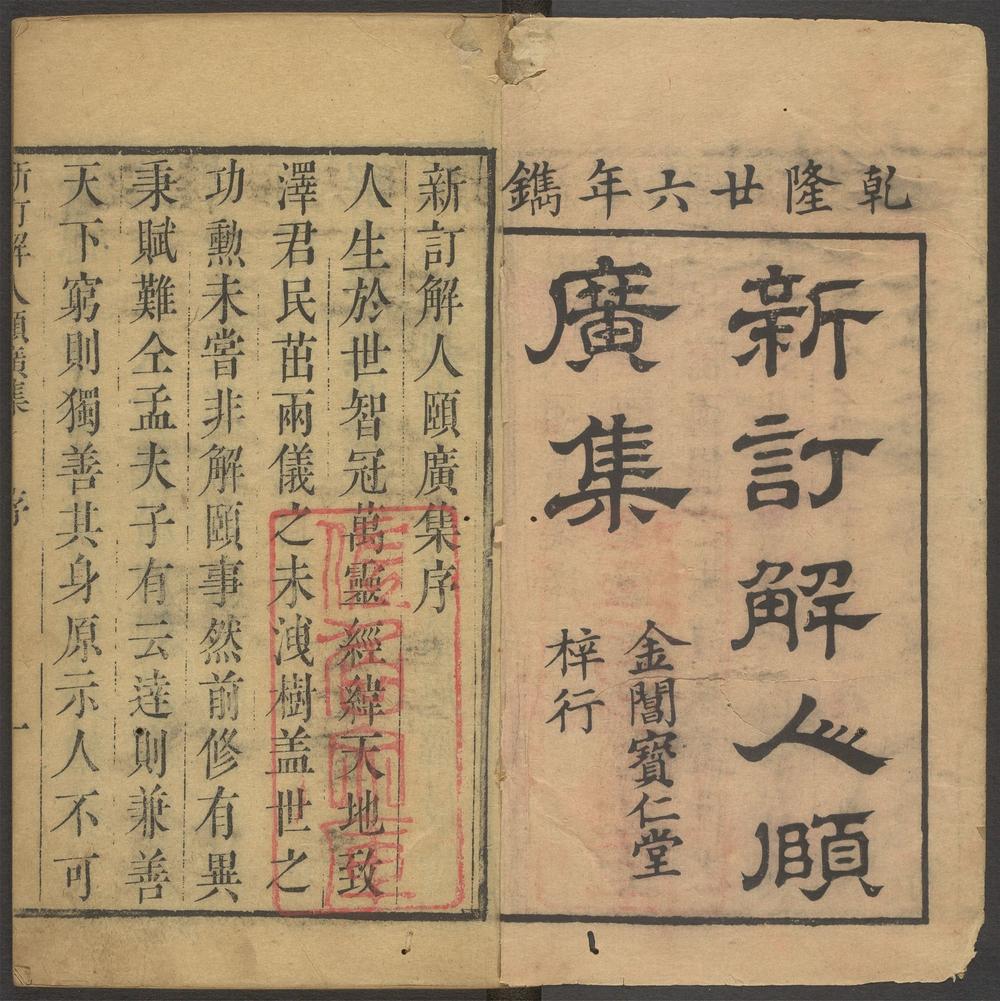 乾隆廿六年鐫
新訂解人頤
廣集
金閶寶仁堂
梓行
新訂解人頤廣集序
人生於世智冠萬靈經緯天地致
澤君民茁兩儀之未洩樹盖世之
功勲未嘗非解頤事然前修有異
秉賦難仝孟夫子有云逹則兼善
天下窮則獨善其身原示人不可
新訂解人頤廣集 序 一